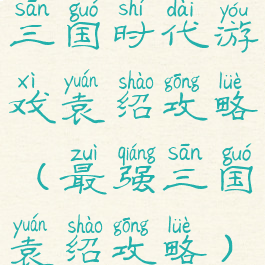 sān guó shí dài yóu
三国时代游
xì yuán shào gōng lüè
戏袁绍攻略
zuì qiáng sān guó
（最强三国
yuán shào gōng lüè
袁绍攻略）